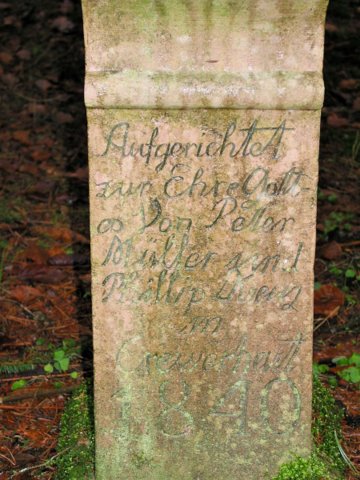 Aufgerichtet
zur Ehre Gott
es Von Petter
Müller und
Phillip
in
1840